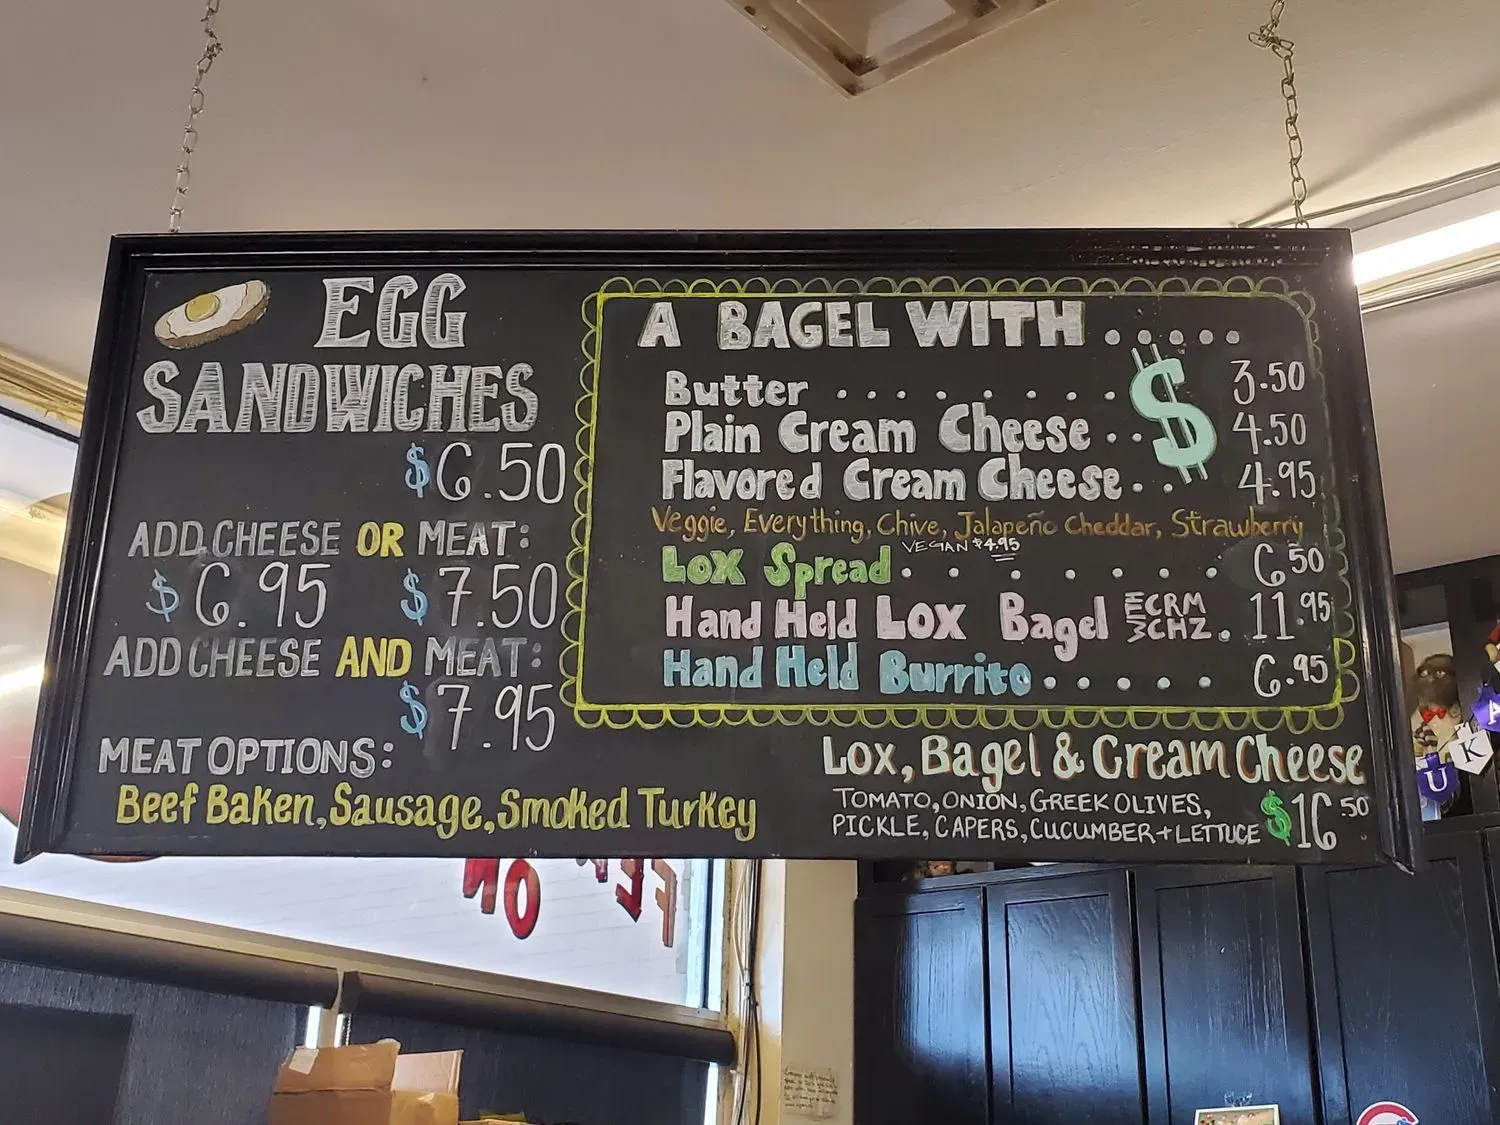 EGG
SANDWICHES
$6.50
ADD CHEESE OR MEAT:
$6.95 $7.50
ADD CHEESE AND MEAT:
$7.95
MEAT OPTIONS:
Beef Baken, Sausage, Smoked Turkey
A BAGEL WITH.....
Butter . . . . . . . $ 3.50
Plain Cream Cheese . . 4.50
Flavored Cream Cheese . . 4.95
Veggie, Everything, Chive, Jalapeño Cheddar, Strawberry
VEGAN $4.95
Lox Spread . . . . . . . 6.50
Hand Held Lox Bagel WITH CRM CHZ . 11.95
Hand Held Burrito . . . . . 6.95
Lox, Bagel & Cream Cheese
TOMATO, ONION, GREEK OLIVES,
PICKLE, CAPERS, CUCUMBER + LETTUCE $16.50
U K